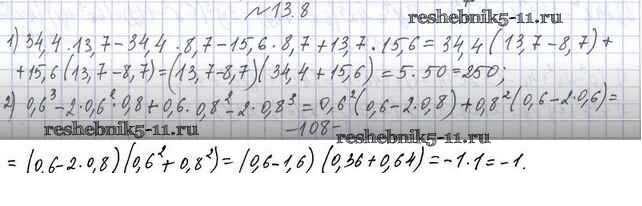 № 13.8
reshebnik5-11.ru
1) 34,4 · 13,7 - 34,4 · 8,7 - 15,6 · 8,7 + 13,7 · 15,6 = 34,4 (13,7 - 8,7) +
+ 15,6 (13,7 - 8,7) = (13,7 - 8,7) (34,4 + 15,6) = 5 · 50 = 250;
2) 0,6³ - 2 · 0,6² · 0,8 + 0,6 · 0,8² - 2 · 0,8³ = 0,6² (0,6 - 2 · 0,8) + 0,8² (0,6 - 2 · 0,6) =
reshebnik5-11.ru
-108-
reshebnik5-11.ru
= (0,6 - 2 · 0,8) (0,6² + 0,8²) = (0,6 - 1,6) (0,36 + 0,64) = -1 · 1 = -1.